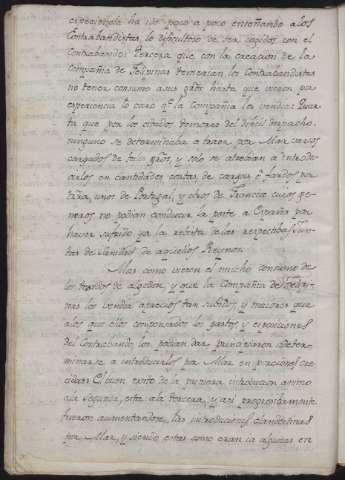 experiencia ha ido poco a poco enseñando alos
Contrabandistas la dificultad de ser cogidos con el
Contrabando: Tercera que con la creacion de la
Compañia de Filipinas los Contrabandistas
no tenian consumo asus grãs hasta que vieron por
experiencia lo caro qe la Compañia los vendia: Quar
ta que por los citados temores del dificil despacho,
ninguno se determinaba a traer por Mar barcos
cargados de tales grãs, y solo se atrevian a introdu
cirlos en cantidades cortas de cargas ó fardos por
tierra, unos de Portugal, y otros de Francia cuios ge-
neros no podian conducir la gente a España por
haver sufrido ya la revista delas respectibas Jun-
tas de Sanidad de aquellos Reynos.
Mas como vieron el mucho consumo de
los texidos de algodon, y que la Compañia de Filipi-
nas los vendia aprecios tan subidos, y maiores que
alos que ellos compensados los gastos y exposiciones
del Contrabando los podian dar principiaron a deter-
minarse a introducirlos por Mar en porciones cre-
cidas: El buen exito de la primera introduccion animo
ala segunda, esta ala tercera, y asi progresibamente
fueron aumentandose las introduciones clandestinas
por Mar, y siendo estas como eran en